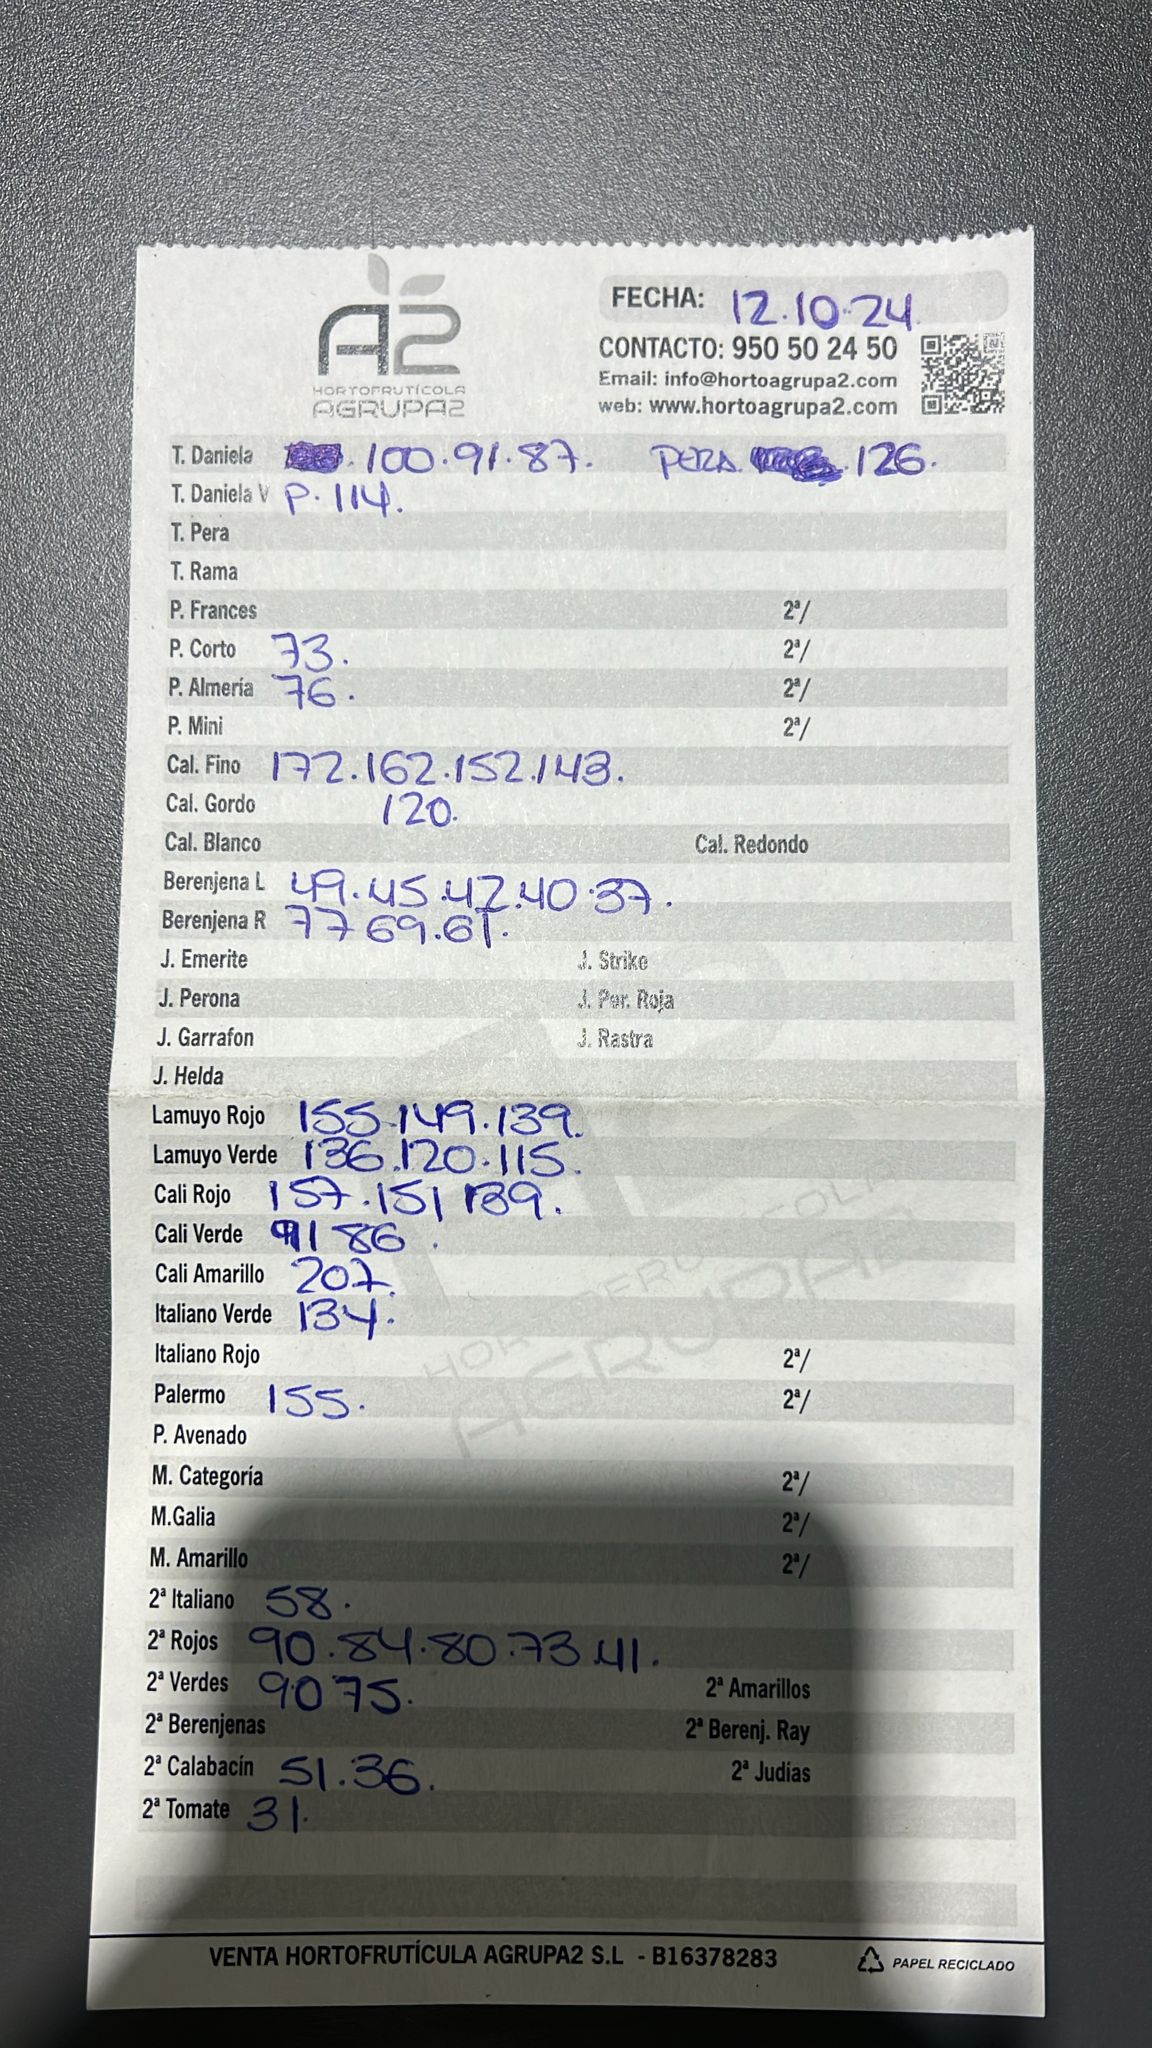 A2
HORTOFRUTÍCOLA
AGRUPA2
FECHA: 12.10.24
CONTACTO: 950 50 24 50
Email: info@hortoagrupa2.com
web: www.hortoagrupa2.com
T. Daniela .100.91.87. PERA. .126.
T. Daniela V P. 114.
T. Pera
T. Rama
P. Frances 2ª/
P. Corto 73. 2ª/
P. Almería 76. 2ª/
P. Mini 2ª/
Cal. Fino 172.162.152.143.
Cal. Gordo 120.
Cal. Blanco Cal. Redondo
Berenjena L 49.45.42.40.37.
Berenjena R 77 69.61.
J. Emerite J. Strike
J. Perona J. Per. Roja
J. Garrafon J. Rastra
J. Helda
Lamuyo Rojo 155.149.139.
Lamuyo Verde 136.120.115.
Cali Rojo 157.151 139.
Cali Verde 91 86.
Cali Amarillo 207.
Italiano Verde 134.
Italiano Rojo 2ª/
Palermo 155. 2ª/
P. Avenado
M. Categoría 2ª/
M.Galia 2ª/
M. Amarillo 2ª/
2ª Italiano 58.
2ª Rojos 90.84.80.73.41.
2ª Verdes 90 75. 2ª Amarillos
2ª Berenjenas 2ª Berenj. Ray
2ª Calabacín 51.36. 2ª Judias
2ª Tomate 31.
VENTA HORTOFRUTÍCULA AGRUPA2 S.L - B16378283 PAPEL RECICLADO